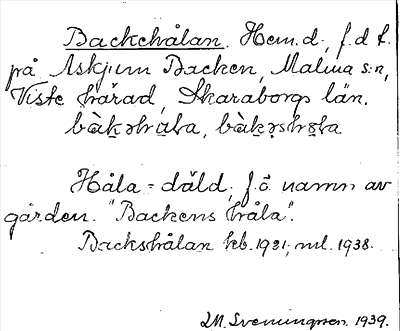 Backehålan. Hem.d., f.d t.
på Askjum Backen, Malma s:n,
Viste härad, Skaraborgs län.
bàkəhåla, bàkəshåla
Håla = däld, f.ö. namn av
gården. "Backens håla".
Backshålan kb. 1921, ml. 1938.
I.M. Svenningson. 1939.